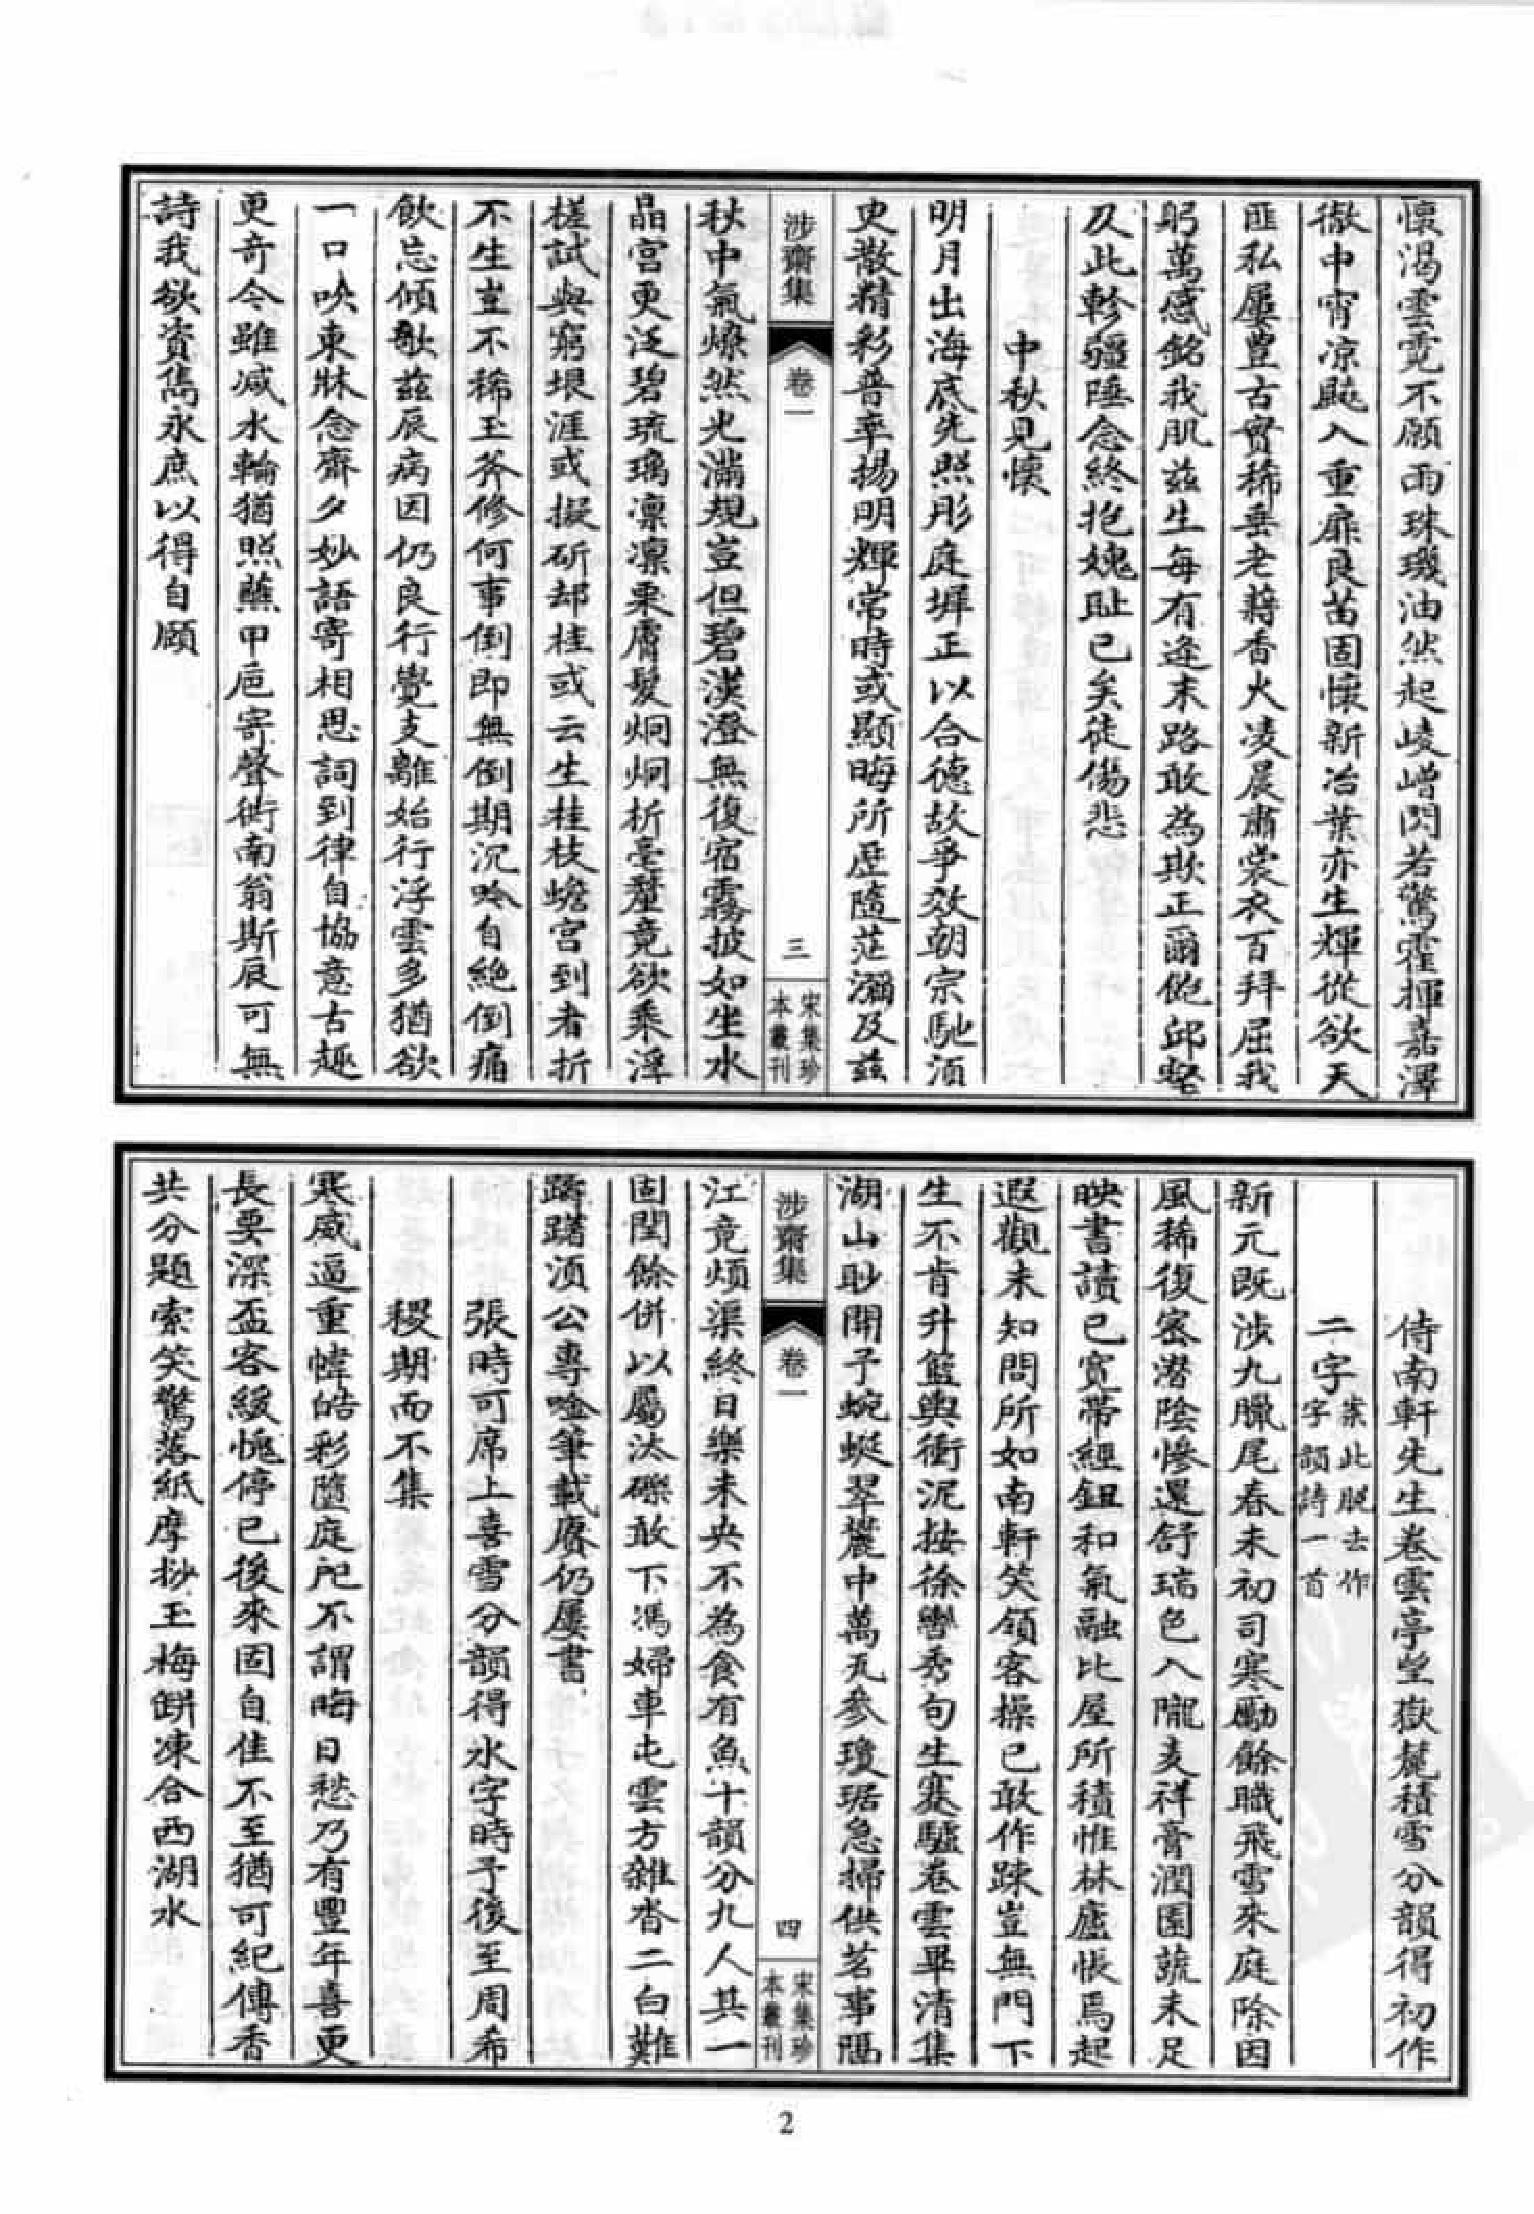 懷渴雲霓不願雨珠璣油然起崚嶒閃若驚霍揮嘉澤
徹中宵凉飈入重扉良苗固懷新冶葉亦生輝從欲天
匪私屢豊古實稀垂老蒋香火凌晨肅裳衣百拜屈我
躬萬感銘我肌兹生每有逢末路敢為欺正爾飽邱壑
及此軫疆陲念終抱媿耻已矣徒傷悲
中秋見懷
明月出海底先照彤庭墀正以合德故爭效朝宗馳湏
史散精彩普率揚明輝常時或顯晦所歴隨茫瀰及兹
涉齋集
卷一
三
宋集珍
本叢刊
秋中氣燦然光滿規豈但碧漢澄無復宿霧披如坐水
晶宫更泛碧琉璃凛凛栗膚髮炯炯析毫釐竟欲乘浮
槎試與窮垠涯或擬斫却桂或云生桂枝蟾宫到者折
不生豈不稀玉斧修何事倒即無倒期沉吟自絶倒痛
飲忘傾欹兹辰病因仍良行覺支離始行浮雲多猶欲
一口吹東牀念齊夕妙語寄相思詞到律自協意古趣
更奇今雖减水輪猶照蘸甲巵寄聲街南翁斯辰可無
詩我欲資雋永庶以得自頤
侍南軒先生卷雲亭望嶽麓積雪分韻得初作
二字
案此脱去作
字韻詩一首
新元既涉九臘尾春未初司寒勵餘職飛雪來庭除因
風稀復密潜陰慘還舒瑞色入隴麦祥膏潤園蔬未足
映書讀已寛帶經鉏和氣融比屋所積惟林廬悵焉起
遐觀未知問所如南軒笑領客操已敢作踈豈無門下
生不肯升籃輿衝泥按徐轡秀句生蹇驢卷雲畢清集
湖山眇開子蜿蜒翠麓中萬瓦參瓊琚急掃供茗事隔
涉齋集
卷一
四
宋集珍
本叢刊
江竟煩渠終日樂未央不為食有魚十韻分九人其一
固閏餘併以屬汰礫敢下馮婦車屯雲方雜沓二白難
躊躇湏公專唫筆載賡仍屢書
張時可席上喜雪分韻得水字時予後至周希
稷期而不集
寒威逼重幃皓彩隨庭戺不謂晦日愁乃有豐年喜更
長要深盃客緩愧停已後來固自佳不至猶可紀傳香
共分題索笑驚落紙摩挱玉梅餅凍合西湖水
2